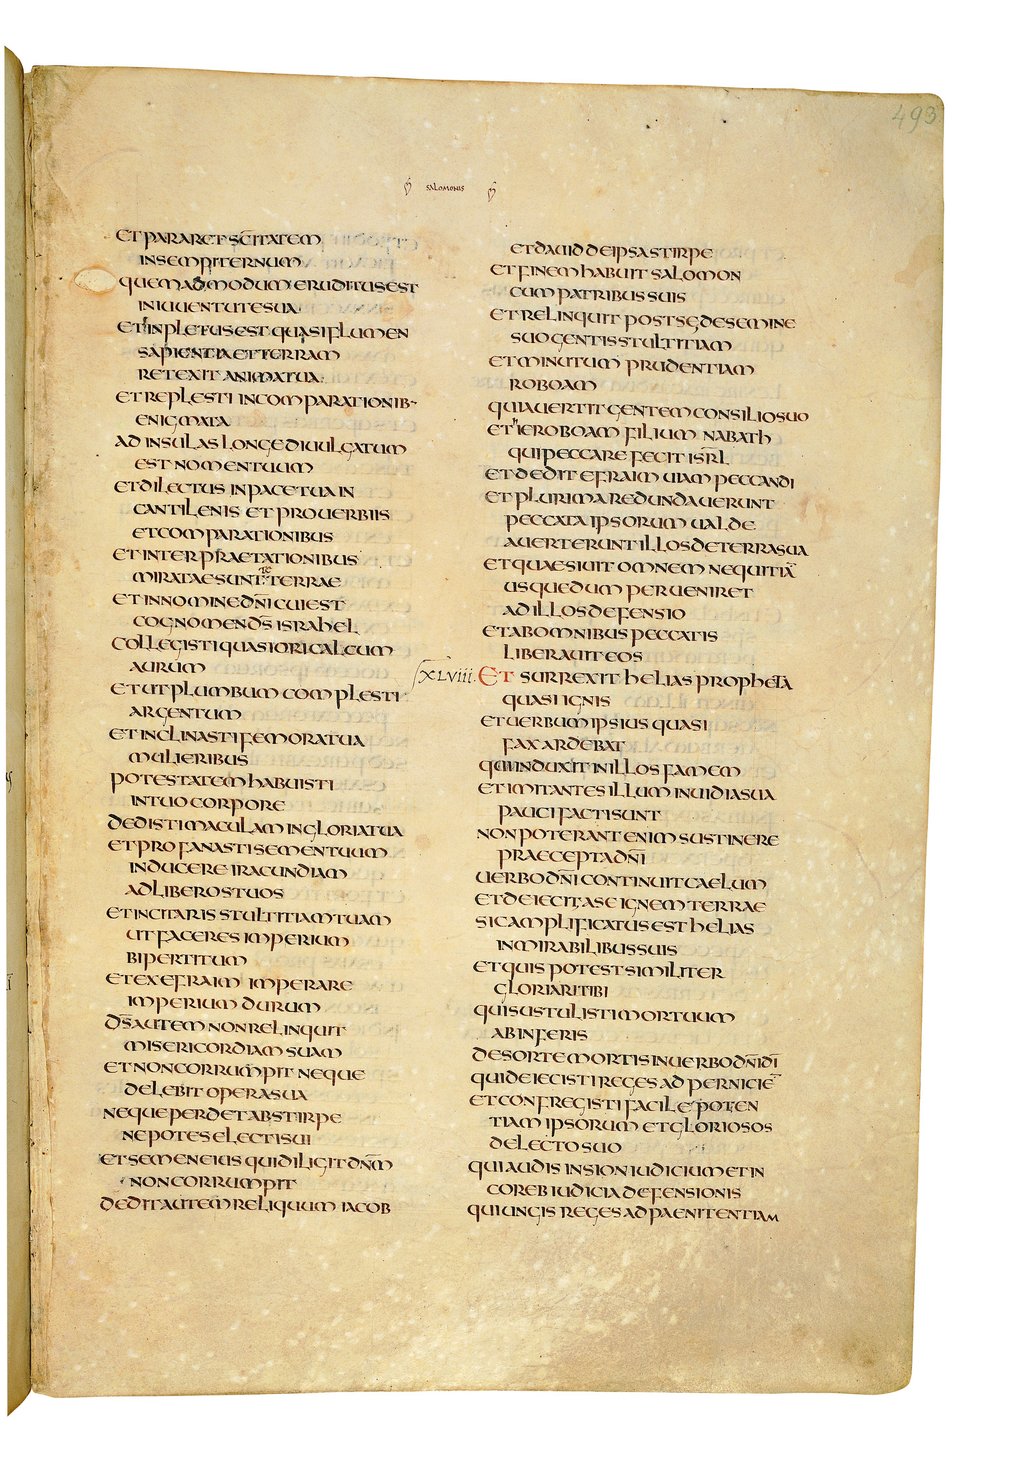 493
SALOMONIS
ET PARARET SC̄ITATEM
IN SEMPITERNUM
QUEMADMODUM ERUDITUS EST
IN IUUENTUTE SUA
ET INPLETUS EST QUASI FLUMEN
SAPIENTIA ET TERRAM
RETEXIT ANIMA TUA
ET REPLESTI IN COMPARATIONIB·
ENIGMATA
AD INSULAS LONGE DIUULGATUM
EST NOMEN TUUM
ET DILECTUS IN PACE TUA IN
CANTILENIS ET PROUERBIIS
ET COMPARATIONIBUS
ET INTERPRAETATIONIBUS
MIRATAE SUNT TERRAE
ET IN NOMINE DN̄I CUI EST
COGNOMEN DS̄ ISRAHEL
COLLEGISTI QUASI ORICALCUM
AURUM
ET UT PLUMBUM COMPLESTI
ARGENTUM
ET INCLINASTI FEMORA TUA
MULIERIBUS
POTESTATEM HABUISTI
IN TUO CORPORE
DEDISTI MACULAM IN GLORIA TUA
ET PROFANASTI SEMEN TUUM
INDUCERE IRACUNDIAM
AD LIBEROS TUOS
ET INCITARI STULTITIAM TUAM
UT FACERES IMPERIUM
BIPERTITUM
ET EX EFRAIM IMPERARE
IMPERIUM DURUM
DS̄ AUTEM NON RELINQUIT
MISERICORDIAM SUAM
ET NON CORRUMPIT NEQUE
DELEBIT OPERA SUA
NEQUE PERDET AB STIRPE
NEPOTES ELECTI SUI
ET SEMEN EIUS QUI DILIGIT DN̄M
NON CORRUMPIT
DEDIT AUTEM RELIQUUM IACOB
ET DAUID DE IPSA STIRPE
ET FINEM HABUIT SALOMON
CUM PATRIBUS SUIS
ET RELINQUIT POST SE DE SEMINE
SUO GENTIS STULTITIAM
ET MINUTUM PRUDENTIAM
ROBOAM
QUI AUERTIT GENTEM CONSILIO SUO
ET HIEROBOAM FILIUM NABATH
QUI PECCARE FECIT ISR̄L
ET DEDIT EFRAIM UIAM PECCANDI
ET PLURIMA REDUNDAUERUNT
PECCATA IPSORUM UALDE
AUERTERUNT ILLOS DE TERRA SUA
ET QUAESIUIT OMNEM NEQUITIĀ
USQUEDUM PERUENIRET
AD ILLOS DEFENSIO
ET AB OMNIBUS PECCATIS
LIBERAUIT EOS
XLVIII. ET SURREXIT HELIAS PROPHETA
QUASI IGNIS
ET UERBUM IPSIUS QUASI
FAX ARDEBAT
QUI INDUXIT IN ILLOS FAMEM
ET IMITANTES ILLUM INUIDIA SUA
PAUCI FACTI SUNT
NON POTERANT ENIM SUSTINERE
PRAECEPTA DN̄I
UERBO DN̄I CONTINUIT CAELUM
ET DEIECIT A SE IGNEM TERRAE
SIC AMPLIFICATUS EST HELIAS
IN MIRABILIBUS SUIS
ET QUIS POTEST SIMILITER
GLORIARI TIBI
QUI SUSTULISTI MORTUUM
AB INFERIS
DE SORTE MORTIS IN UERBO DN̄I DĪ
QUI DEIECISTI REGES AD PERNICIĒ
ET CONFREGISTI FACILE POTEN
TIAM IPSORUM ET GLORIOSOS
DE LECTO SUO
QUI AUDIS IN SION IUDICIUM ET IN
COREB IUDICIA DEFENSIONIS
QUI UNGIS REGES AD PAENITENTIAM